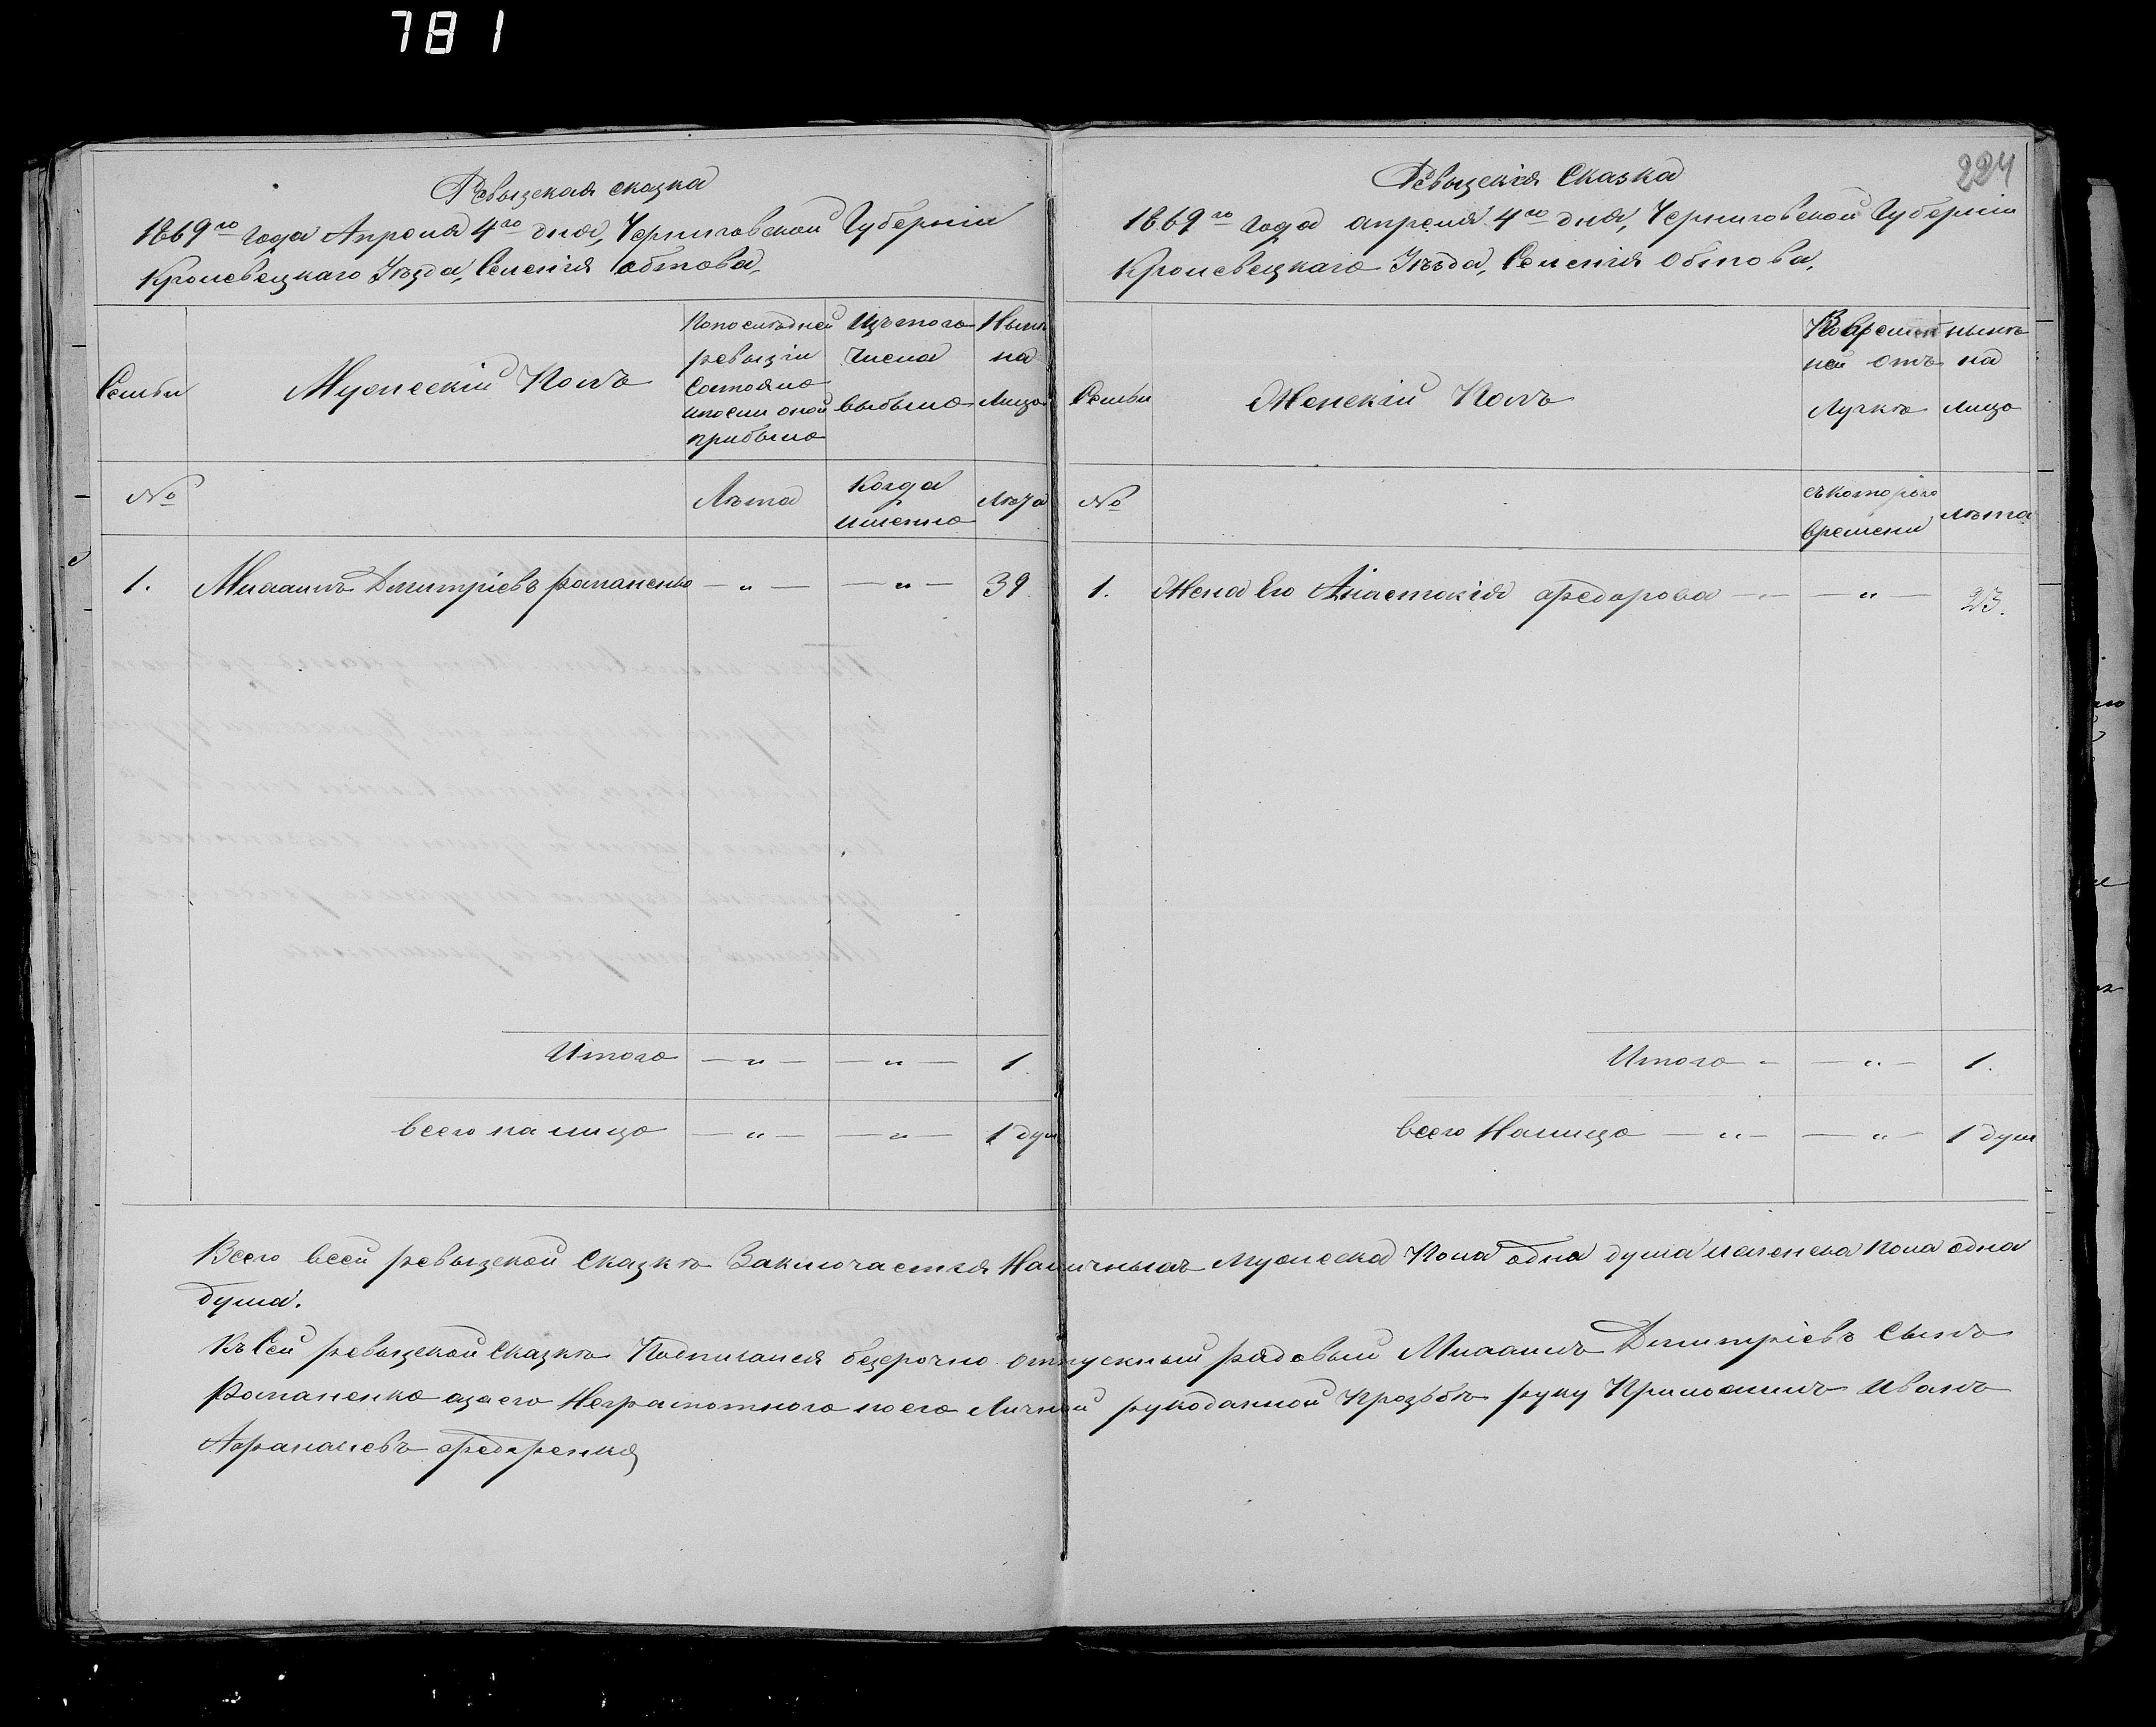 781
Ревызская сказка
1869го года Апреля 4го дня, Черниговской Губерніи
Кролевецкаго Уѣзда, Селенія Обтова,
Семьи
Мужескій Полъ
Попоследней ревызіи Состояло ипосли оной прибыло
Изъ того Числа выбыло
Нынѣ на Лицо
№
Лѣта
Когда именно
Лѣта
1. Михаилъ Дмитріевъ романенко — „ — — „ — 39.
Итого — „ — — „ — 1.
всего на лицо — „ — — „ — 1 душ
224
Ревызскія Сказка
1869го года апреля 4го дня, Черниговской Губерніи
Кролевецкаго Уѣзда, Селенія Обтова,
Семьи
Женскій Полъ
отъ Лучкѣ
нынѣ на лицо
№
съкотораго времени
лѣта
1. Жена Его Анастасія Федорова — „ — 23.
Итого — „ — 1.
всего Налицо — „ — — „ — 1 душ
Всего всей ревызской Сказкѣ Заключается Наличныхъ мужеска Пола одна душа иженска пола одна
душа.
Къ Сей ревызской Сказкѣ Подписался безсрочно отпускный рядовый Михаилъ Дмитріевъ Сынъ
Романенко азаего Неграмотного поего Личной рукоданной Прозьбѣ руку Приложилъ Иванъ
Афанасіевъ Федоренко